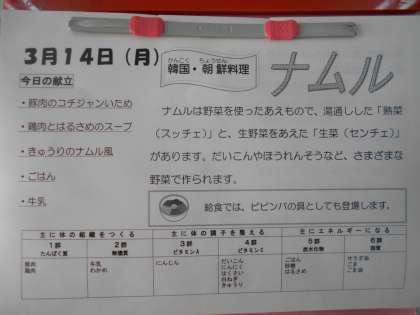 3月14日(月)
かんこく ちょうせん
韓国・朝鮮料理
ナムル
今日の献立
・豚肉のコチジャンいため
・鶏肉とはるさめのスープ
・きゅうりのナムル風
・ごはん
・牛乳
ナムルは野菜を使ったあえもので、湯通しした「熟菜
(スッチェ)」と、生野菜をあえた「生菜(センチェ)」
があります。だいこんやほうれんそうなど、さまざまな
野菜で作られます。
給食では、ビビンバの具としても登場します。
主に体の組織をつくる
主に体の調子を整える
主にエネルギーになる
1群
たんぱく質
2群
無機質
3群
ビタミンA
4群
ビタミンC
5群
炭水化物
6群
脂質
豚肉
鶏肉
牛乳
わかめ
にんじん
だいこん
にんにく
はくさい
白ねぎ
きゅうり
ごはん
砂糖
はるさめ
サラダ油
ごま
ごま油